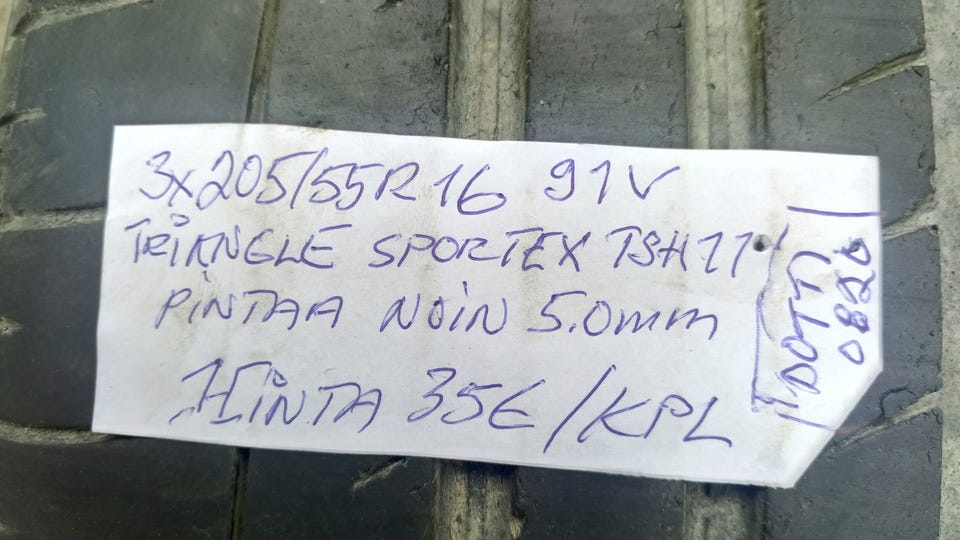 3x205/55R16 91V
TRIANGLE SPORTEX TSH11
PINTAA NOIN 5.0mm
HINTA 35€/KPL
DOTTI
0820